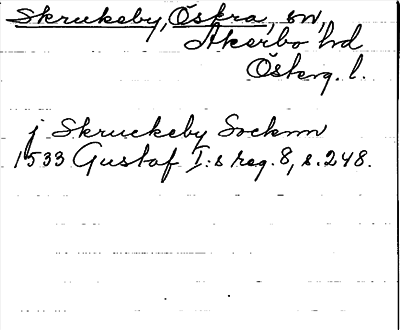 Skrukeby, Östra, sn,
Åkerbo hd
Österg. l.
j Skruckeby Socknn
1533 Gustaf I:s reg. 8, s. 248.